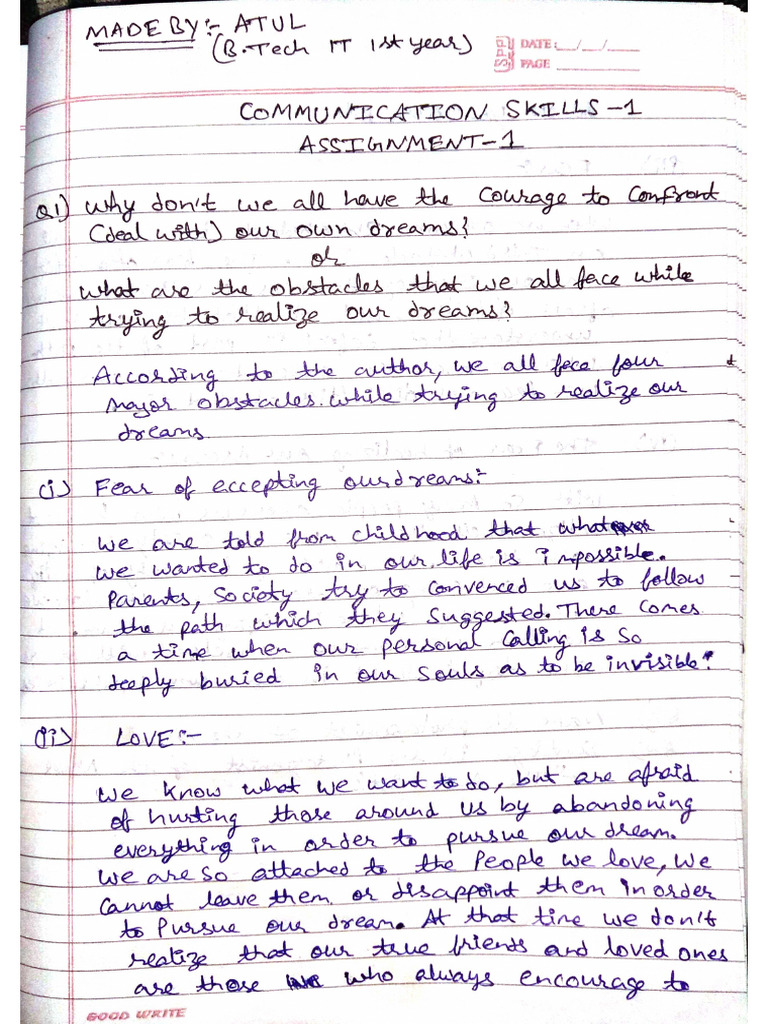 MADE BY:- ATUL
(B.Tech IT 1st year)
SPP
DATE: __/__/__
PAGE
COMMUNICATION SKILLS-1
ASSIGNMENT-1
Q1) Why don't we all have the courage to confront
(deal with) our own dreams?
or
What are the obstacles that we all face while
trying to realize our dreams?
According to the author, we all face four
major obstacles while trying to realize our
dreams
(i) Fear of eccepting our dreams:-
We are told from childhood that what
we wanted to do in our life is impossible.
Parents, Society try to convenced us to follow
the path which they suggested. There comes
a time when our personal calling is so
deeply buried in our souls as to be invisible.
(ii) LOVE:-
We know what we want to do, but are afraid
of hurting those around us by abandoning
everything in order to pursue our dream.
We are so attached to the people we love, we
cannot leave them or disappoint them in order
to pursue our dream. At that time we don't
realize that our true friends and loved ones
are those who always encourage to
GOOD WRITE